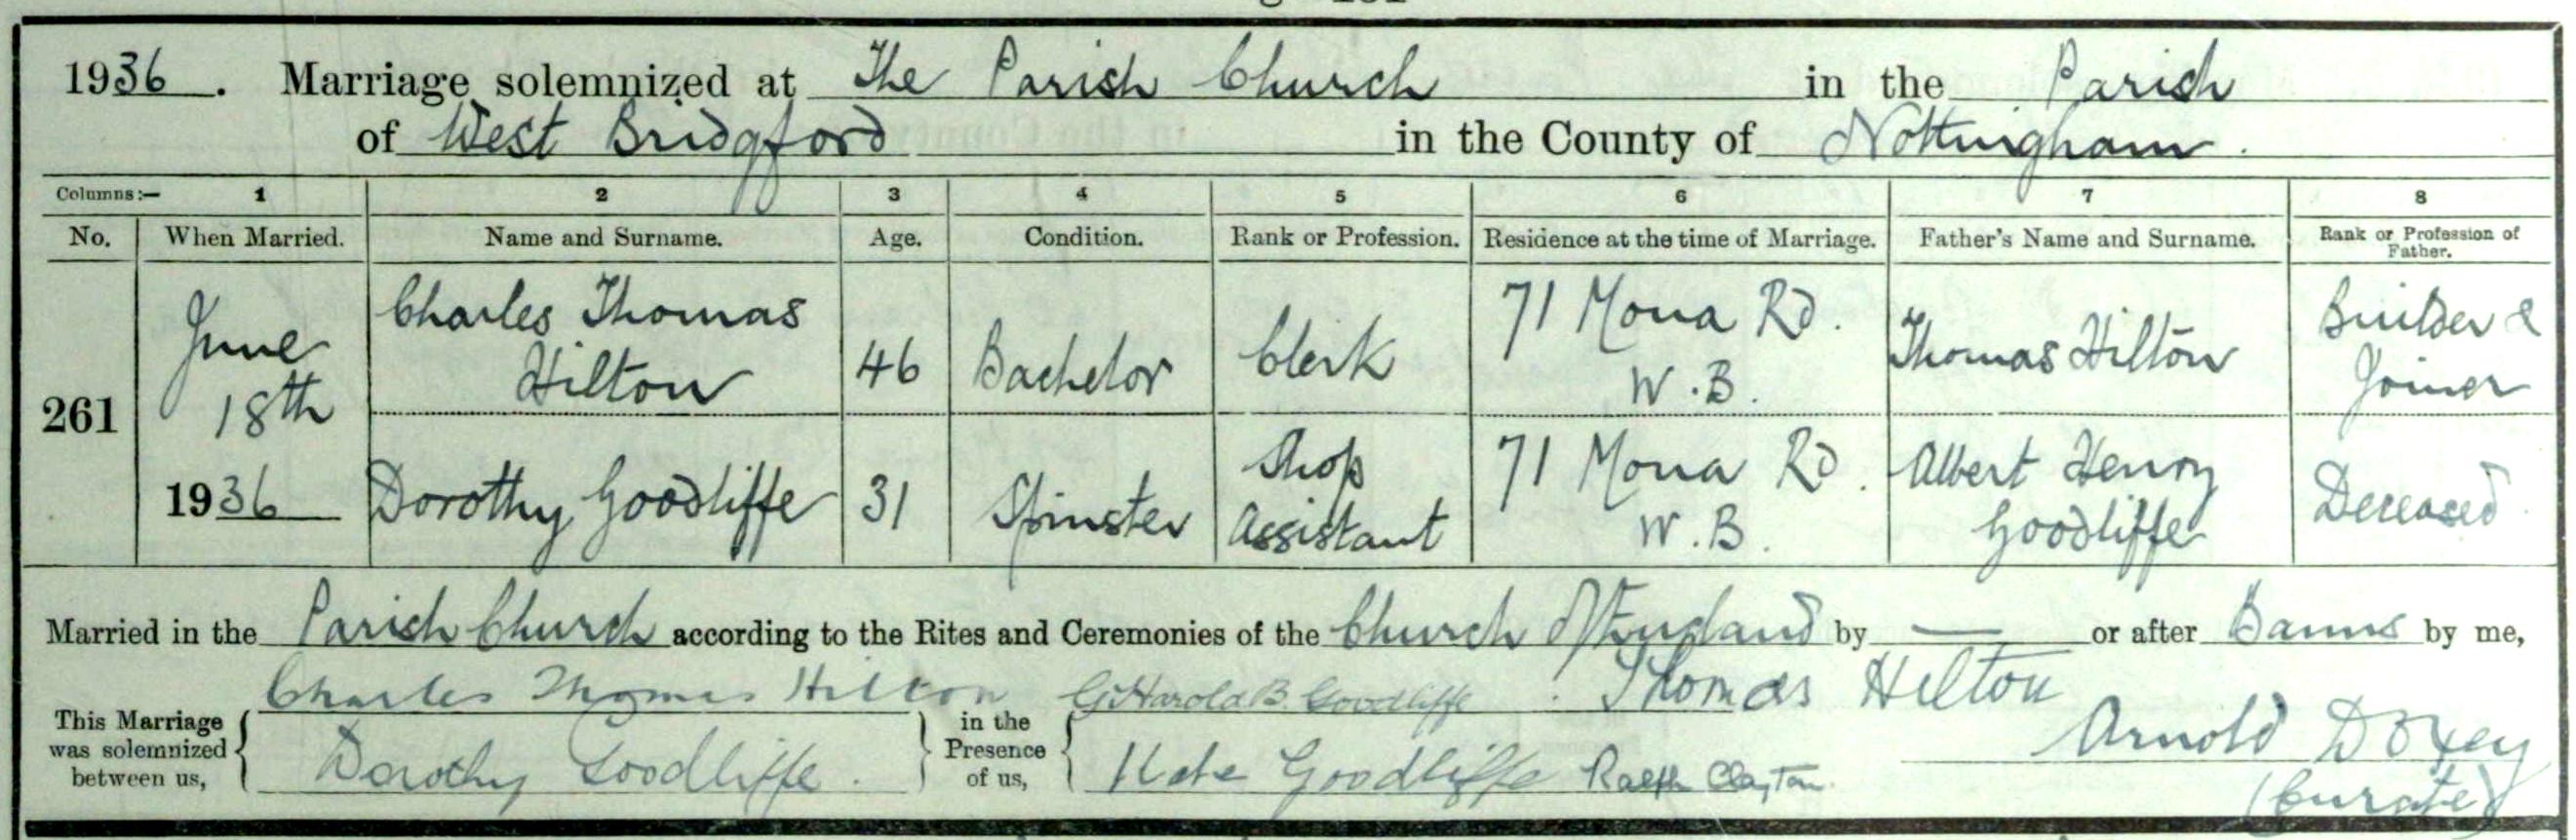 1936. Marriage solemnized at The Parish Church in the Parish
of West Bridgford in the County of Nottingham.
Columns:— 1 2 3 4 5 6 7 8
No. When Married. Name and Surname. Age. Condition. Rank or Profession. Residence at the time of Marriage. Father's Name and Surname. Rank or Profession of Father.
261 June 18th 1936 Charles Thomas Hilton 46 Bachelor Clerk 71 Mona Rd. W.B. Thomas Hilton Builder & Joiner
Dorothy Goodliffe 31 Spinster Shop Assistant 71 Mona Rd. W.B. Albert Henry Goodliffe Deceased
Married in the Parish Church according to the Rites and Ceremonies of the Church of England by — or after Banns by me,
Charles Thomas Hilton Harold B. Goodliffe Thomas Hilton
This Marriage was solemnized between us, in the Presence of us, Arnold Doxey
Dorothy Goodliffe. Kate Goodliffe Ralph Clayton. (Curate)